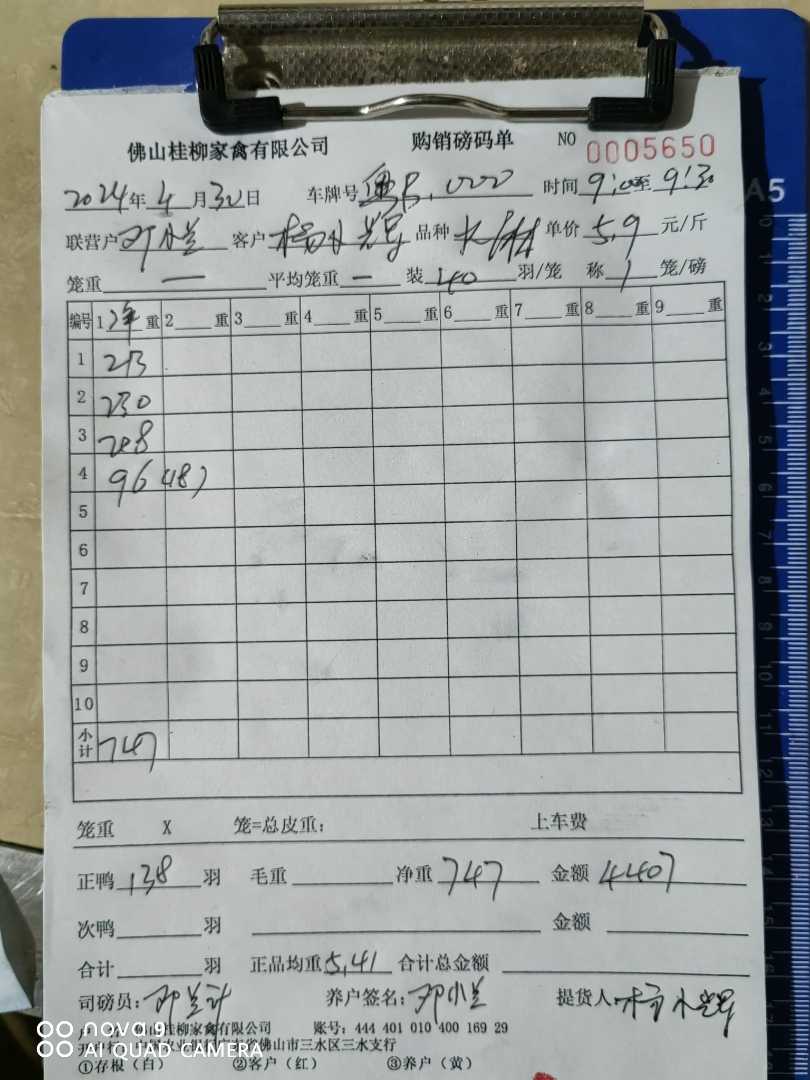 佛山桂柳家禽有限公司 购销磅码单 NO 0005650
2024年4月30日 车牌号 时间 9:20至9:30
联营户 邓小兰 客户 杨小辉 品种 单价 5.9 元/斤
笼重 — 平均笼重 — 装 40 羽/笼 称 1 笼/磅
编号 1 净 重 2 重 3 重 4 重 5 重 6 重 7 重 8 重 9 重
1 213
2 230
3 208
4 96 (18)
5
6
7
8
9
10
小计 747
笼重 X 笼=总皮重: 上车费
正鸭 138 羽 毛重 净重 747 金额 4407
次鸭 羽 金额
合计 羽 正品均重 5.41 合计总金额
司磅员: 邓兰计 养户签名: 邓小兰 提货人: 杨小辉
佛山桂柳家禽有限公司 账号: 444 401 010 400 169 29
佛山市三水区三水支行
①存根(白) ②客户(红) ③养户(黄)
nova 9
AI QUAD CAMERA
A5
10
2
3
4
5
6
7
8
9
10
11
12
13
14
15
16